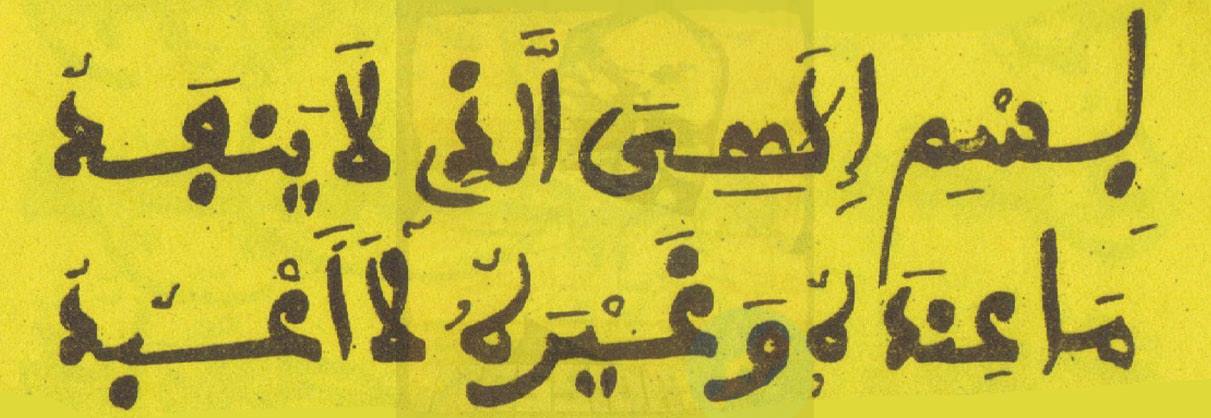 بِسْمِ إِلَٰهِىَ الَّذِى لَا يَنفَدُ
مَا عِندَهُ وَغَيْرَهُ لَا أَعْبُدُ